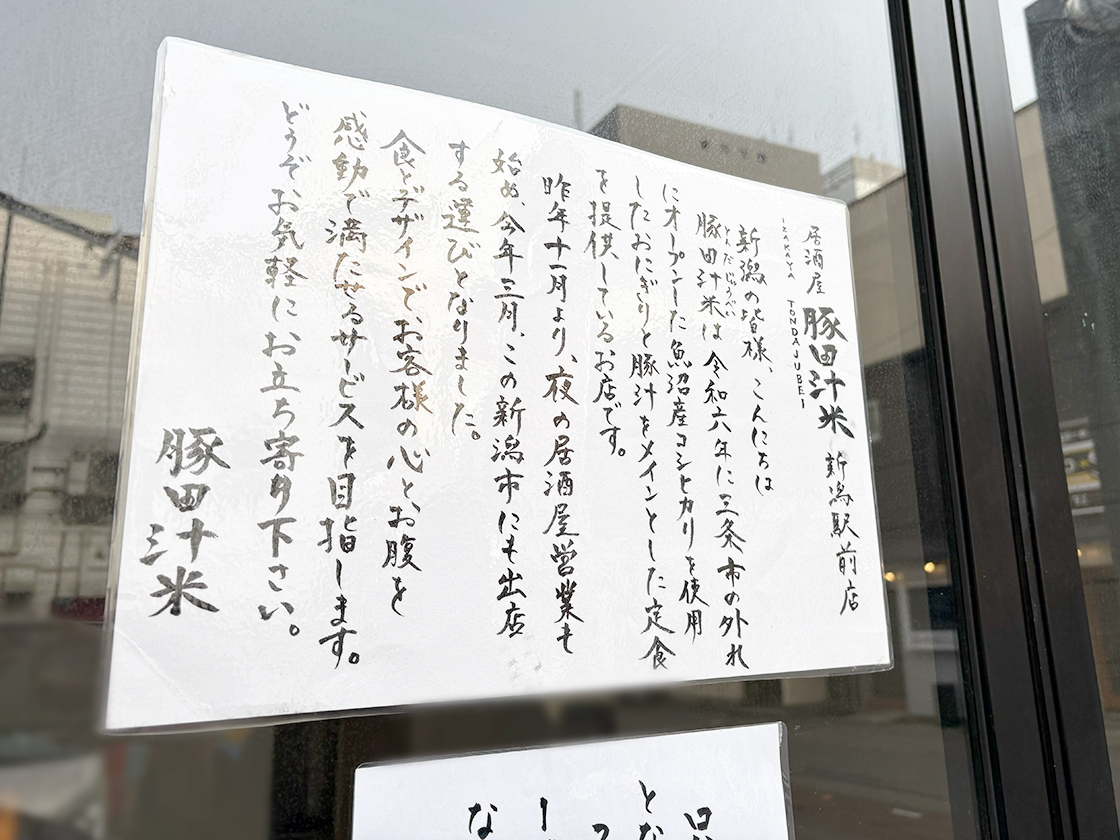 居酒屋 豚田汁米 新潟駅前店
IZAKAYA TONDAJUBEI
新潟の皆様、こんにちは
とんだじゅうべい
豚田汁米は令和六年に三条市の外れ
にオープンした魚沼産コシヒカリを使用
したおにぎりと豚汁をメインとした定食
を提供しているお店です。
昨年十一月より、夜の居酒屋営業も
始め、今年三月、この新潟市にも出店
する運びとなりました。
食とデザインで、お客様の心と、お腹を
感動で満たせるサービスを目指します。
どうぞお気軽にお立ち寄り下さい。
豚田汁米
とな
な